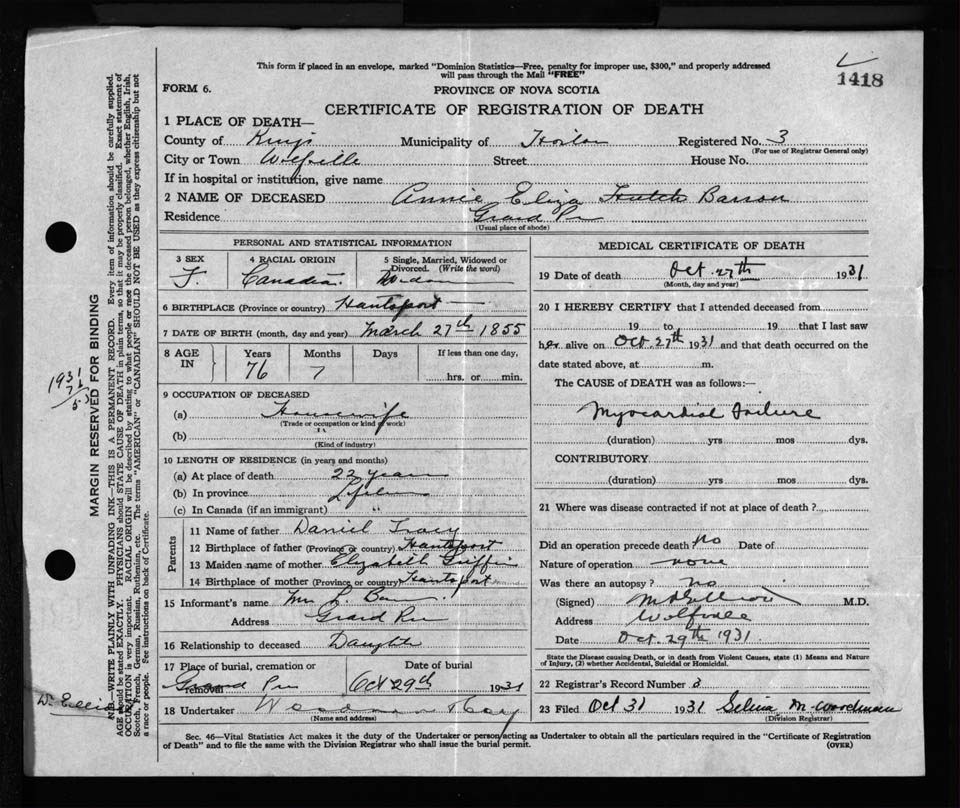 This form if placed in an envelope, marked "Dominion Statistics—Free, penalty for improper use, $300," and properly addressed
will pass through the Mail "FREE"
1418
FORM 6.
PROVINCE OF NOVA SCOTIA
CERTIFICATE OF REGISTRATION OF DEATH
1 PLACE OF DEATH—
County of Kings Municipality of Horton Registered No. 3
(For use of Registrar General only)
City or Town Wolfville Street House No.
If in hospital or institution, give name
2 NAME OF DECEASED Annie Eliza Hutch Barron
Residence Grand Pre
(Usual place of abode)
PERSONAL AND STATISTICAL INFORMATION
3 SEX 4 RACIAL ORIGIN 5 Single, Married, Widowed or
Divorced. (Write the word)
F. Canadian Widow
6 BIRTHPLACE (Province or country) Hantsport
7 DATE OF BIRTH (month, day and year) March 27th 1855
8 AGE IN Years Months Days If less than one day,
76 7 hrs. or min.
9 OCCUPATION OF DECEASED
(a) Housewife
(Trade or occupation or kind of work)
(b)
(Kind of industry)
10 LENGTH OF RESIDENCE (in years and months)
(a) At place of death 22 years
(b) In province
(c) In Canada (if an immigrant) "
Parents
11 Name of father Daniel Tracy
12 Birthplace of father (Province or country) Hantsport
13 Maiden name of mother Elizabeth Griffin
14 Birthplace of mother (Province or country) Hantsport
15 Informant's name Mrs L
Address Grand Pre
16 Relationship to deceased Daughter
17 Place of burial, cremation or removal Date of burial
Grand Pre Oct 29th 1931
18 Undertaker Woodman
(Name and address)
MEDICAL CERTIFICATE OF DEATH
19 Date of death Oct. 27th 1931
(Month, day and year)
20 I HEREBY CERTIFY that I attended deceased from
19 to 19 that I last saw
her alive on Oct. 27th 1931 and that death occurred on the
date stated above, at m.
The CAUSE of DEATH was as follows:—
Myocardial Failure
(duration) yrs mos dys.
CONTRIBUTORY
(duration) yrs. mos. dys.
21 Where was disease contracted if not at place of death?
Did an operation precede death? No Date of
Nature of operation none
Was there an autopsy? no
(Signed) M.D.
Address Wolfville
Date Oct. 29th 1931.
State the Disease causing Death, or in death from Violent Causes, state (1) Means and Nature
of Injury, (2) whether Accidental, Suicidal or Homicidal.
22 Registrar's Record Number 3
23 Filed Oct 31 1931 Selina M. Woodman
(Division Registrar)
Sec. 46—Vital Statistics Act makes it the duty of the Undertaker or person acting as Undertaker to obtain all the particulars required in the "Certificate of Registration
of Death" and to file the same with the Division Registrar who shall issue the burial permit.
(OVER)
MARGIN RESERVED FOR BINDING
N.B.—WRITE PLAINLY WITH UNFADING INK—THIS IS A PERMANENT RECORD. Every item of information should be carefully supplied.
AGE should be stated EXACTLY. PHYSICIANS should STATE CAUSE OF DEATH in plain terms, so that it may be properly classified. Exact statement of
OCCUPATION is very important. RACIAL ORIGIN will be described by stating to what people or race the deceased person belonged, whether English, Irish,
Scotch, French, German, Russian, Ruthenian, etc. The terms "AMERICAN" or "CANADIAN" SHOULD NOT BE USED as they express citizenship but not
a race or people. See instructions on back of Certificate.
1931
76
5
Dr. Elliott